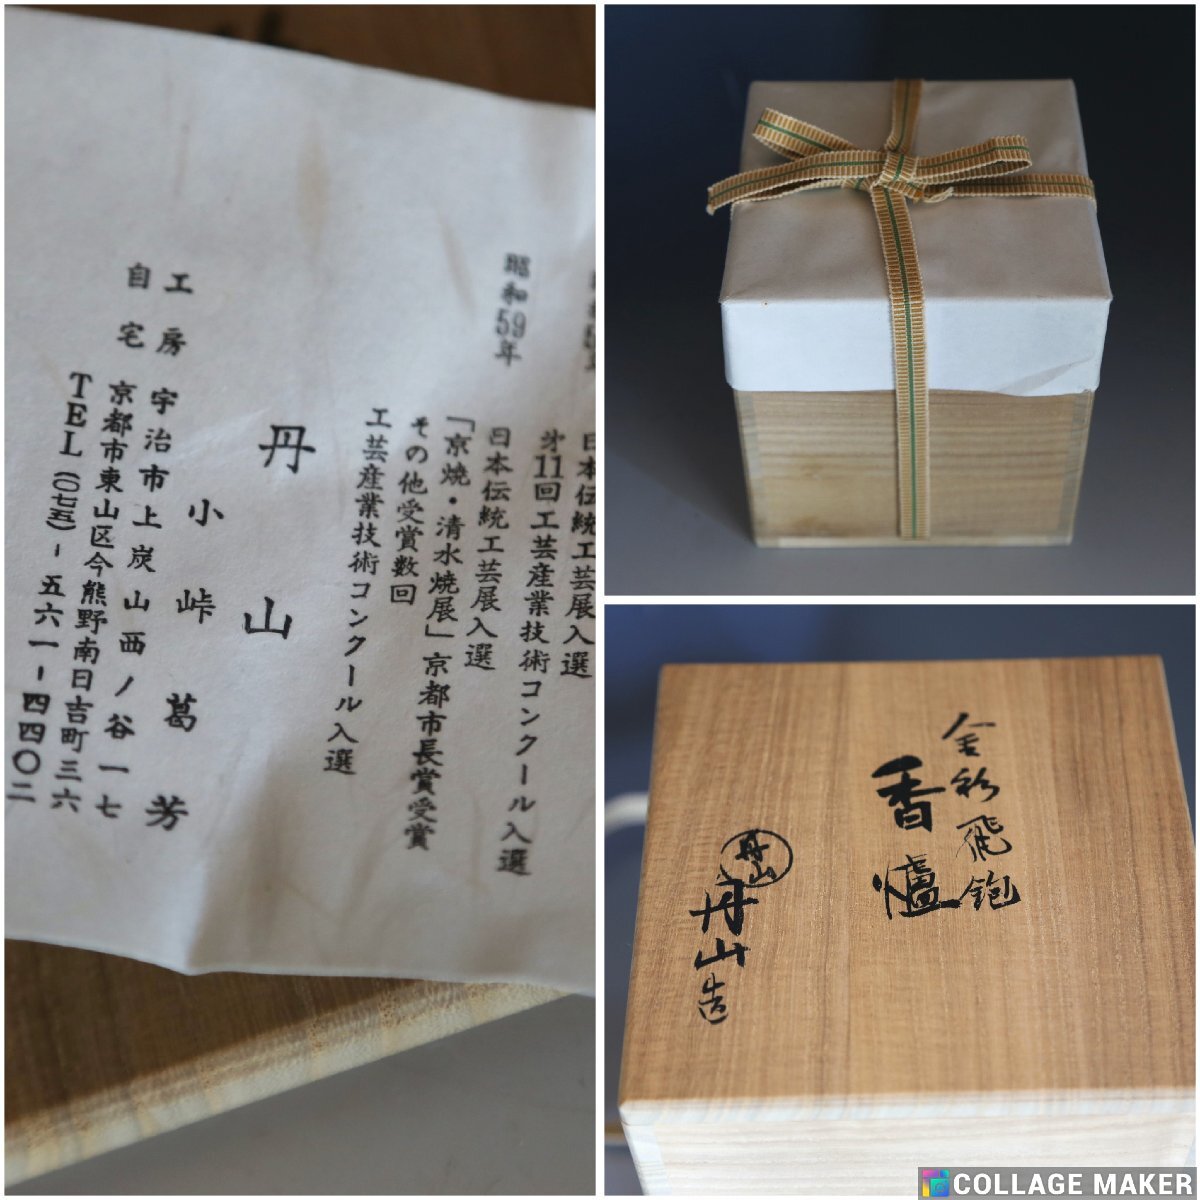 日本伝統工芸展入選
第11回工芸産業技術コンクール入選
昭和59年
日本伝統工芸展入選
「京焼・清水焼展」京都市長賞受賞
その他受賞数回
工芸産業技術コンクール入選
丹山
小峠葛芳
工房 宇治市上炭山西ノ谷一七
自宅 京都市東山区今熊野南日吉町三六
TEL(〇七五)-五六一-四四〇二
金彩飛鉋
香爐
丹山
丹山造
COLLAGE MAKER